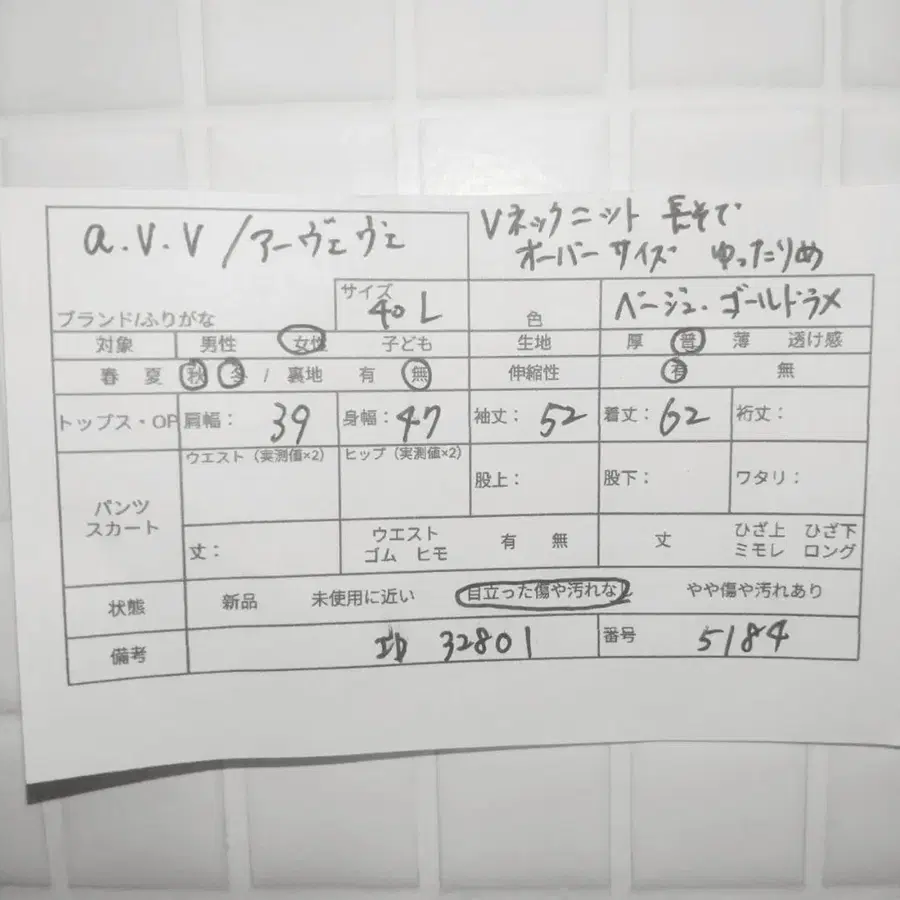 a.v.v/アーヴェヴェ
Vネックニット 長そで
オーバーサイズ ゆったりめ
ブランド/ふりがな
サイズ 40 L
色 ベージュ・ゴールドラメ
対象 男性 女性 子ども 生地 厚 普 薄 透け感
春 夏 秋 冬 / 裏地 有 無 伸縮性 有 無
トップス・OP 肩幅: 39 身幅: 47 袖丈: 52 着丈: 62 裄丈:
パンツ
スカート
ウエスト(実測値×2) ヒップ(実測値×2) 股上: 股下: ワタリ:
丈: ウエスト
ゴム ヒモ
有 無 丈 ひざ上 ひざ下
ミモレ ロング
状態 新品 未使用に近い 目立った傷や汚れなし やや傷や汚れあり
備考 32801 番号 5184